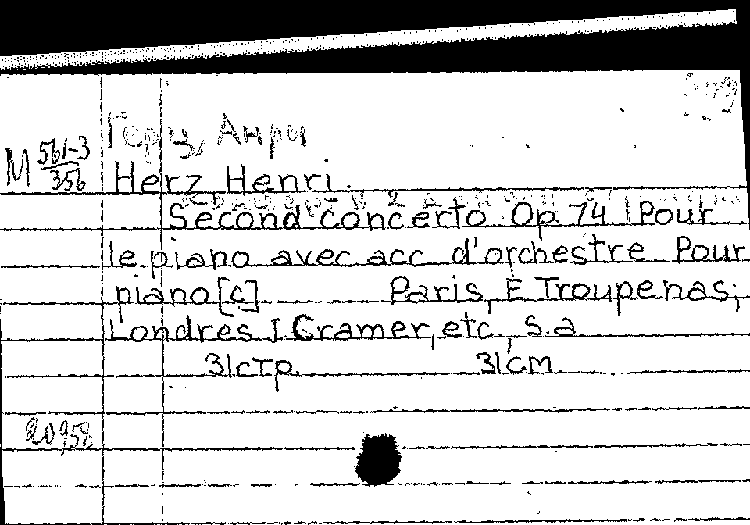 Герц, Анри
М 561-3/356
Herz Henri.
Second concerto Op. 74 Pour
le piano avec acc d'orchestre Pour
piano [c] Paris, E Troupenas;
Londres I. Cramer, etc., s.a
31 стр. 31 см.
20958